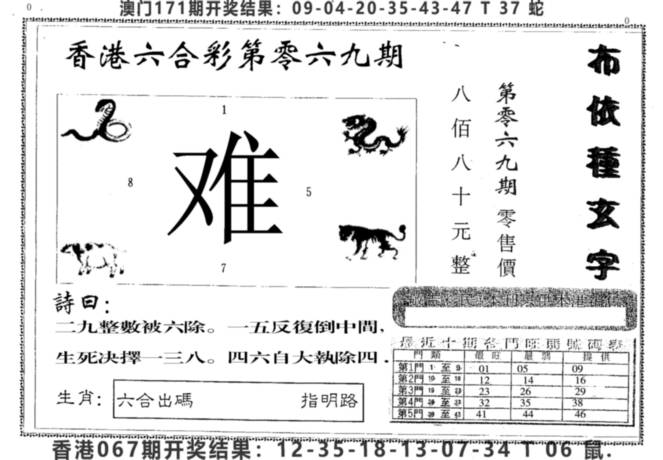 澳门171期开奖结果：09-04-20-35-43-47 T 37 蛇
0
0
香港六合彩第零六九期
1
8
难
5
7
八佰八十元整
第零六九期 零售價
布依種玄字
詩曰：
二九整數被六除。一五反復倒中間，
生死决擇一三八。四六自大執除四．
生肖：
六合出碼 指明路
門 類 最旺 最弱 提供
第1門 1 至 9 01 05 09
第2門 10 至 18 12 14 16
第3門 至 23 26 29
第4門 至 32 35 38
第5門 至 41 44 46
香港067期开奖结果：12-35-18-13-07-34 T 06 鼠.